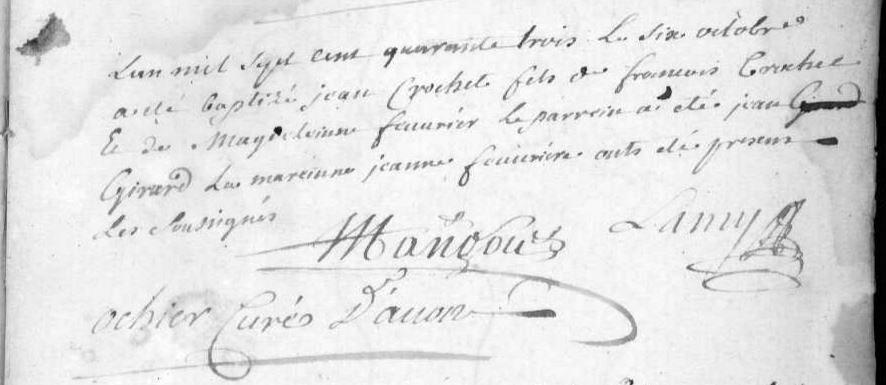 Lan mil sept cent quarante trois le six octobre
a eté baptizé jean Crochet fils de francois Crochet
Et de Magdelainne feuurier le parrein a eté jean
Girard La mareinne jeanne feuuriere onts eté presens
Les Sousignés
Lamy
ochier Curé D'auon